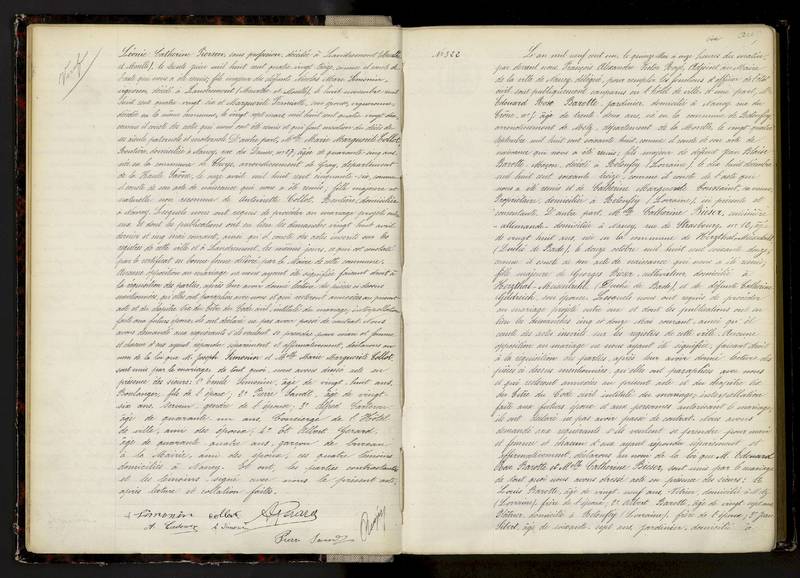 Léonie Catherine Pierron, sans profession, décédée à Landremont (Meurthe
et Moselle), le douze juin mil huit cent quatre vingt treize, comme il conste de
l'acte qui nous a été remis; fils majeur de défunts Nicolas Marc Simonin,
vigneron, décédé à Landremont (Meurthe et Moselle), le huit novembre mil
huit cent quatre vingt six et Marguerite son épouse, vigneronne,
décédée en la même commune, le vingt sept mars mil huit cent quatre vingt
comme il conste des actes qui nous ont été remis et qui font mention du décès de
ses aïeuls paternels et maternels. D'autre part, Mlle Marie Marguerite Collot,
domiciliée à Nancy, rue No 17, âgée de quarante cinq ans,
née en la commune de arrondissement de Gray, département
de la Haute Saône, le onze avril mil huit cent cinquante six, comme
il conste de son acte de naissance qui nous a été remis, fille majeure et
naturelle non reconnue de Antoinette Collot, domiciliée
à Nancy. Lesquels nous ont requis de procéder au mariage projeté entre
eux et dont les publications ont eu lieu les dimanches vingt huit avril
dernier et cinq mai courant, ainsi qu'il conste des actes inscrits sur les
registres de cette ville et à Landremont, les mêmes jours, ce qui est constaté
par le certificat en bonne forme délivré par le Maire de cette commune.
Aucune opposition au mariage ne nous ayant été signifiée, faisant droit à
la réquisition des parties, après leur avoir donné lecture des pièces ci dessus
mentionnées, qu'elles ont paraphées avec nous et qui resteront annexées au présent
acte et du chapitre six du titre du Code civil, intitulé du mariage, interpellation
faite aux futurs époux, ils ont déclaré ne pas avoir passé de contrat. Nous
avons demandé aux requérants s'ils veulent se prendre pour mari et femme
et chacun d'eux ayant répondu séparément et affirmativement, déclarons au
nom de la loi que M. Joseph Simonin et Mlle Marie Marguerite Collot
sont unis par le mariage, de tout quoi, nous avons dressé acte en
présence des sieurs: 1° Emile Simonin, âgé de vingt huit ans,
Boulanger, fils de l'époux; 2° Pierre Sandt, âgé de vingt
six ans, gendre de l'épouse; 3° Alfred
âgé de quarante un ans, Concierge de l'Hôtel
de ville, ami des époux; 4° Et Albert Gérard,
âgé de quarante quatre ans, garçon de bureau
à la Mairie, ami des époux, ces quatre témoins
domiciliés à Nancy. Et ont, les parties contractantes
et les témoins, signé avec nous le présent acte,
après lecture et collation faites.
J Simonin collot A Gérard
E Simonin
Pierre Sandt
No 322
L'an mil neuf cent un, le quinze Mai à onze heures du matin,
par devant nous, François Alexandre Adjoint au Maire
de la ville de Nancy, délégué, pour remplir les fonctions d'officier de l'état
civil sont publiquement comparus en l'hôtel de ville, d'une part, M.
Edouard Rose Barotte, jardinier, domicilié à Nancy, rue du
No 7, âgé de trente deux ans, né en la commune de Rezonfey
arrondissement de Metz, département de la Moselle, le vingt quatre
septembre mil huit cent soixante huit, comme il conste de son acte de
naissance qui nous a été remis, fils majeur de défunt
Barotte, Maçon, décédé à (Lorraine), le dix huit décembre
mil huit cent soixante treize, comme il conste de l'acte qui
nous a été remis et de Catherine Marguerite Toussaint, sa veuve,
Propriétaire, domiciliée à (Lorraine), ici présente et
consentante. D'autre part, Mlle Catherine Bieser, cuisinière
allemande, domiciliée à Nancy, rue de Strasbourg, No 10, âgée
de vingt huit ans, née en la commune de
(Duché de Bade), le douze octobre mil huit cent soixante douze,
comme il conste de son acte de naissance qui nous a été remis,
fille majeure de Georges Bieser, cultivateur, domicilié à
(Duché de Bade) et de défunte Catherine
son épouse. Lesquels nous ont requis de procéder
au mariage projeté entre eux et dont les publications ont eu
lieu les dimanches cinq et douze Mai courant, ainsi qu'il
conste des actes inscrits sur les registres de cette ville. Aucune
opposition au mariage ne nous ayant été signifiée, faisant droit
à la réquisition des parties, après leur avoir donné lecture des
pièces ci dessus mentionnées, qu'elles ont paraphées avec nous
et qui resteront annexées au présent acte et du chapitre six
du titre du Code civil intitulé du mariage, interpellation
faite aux futurs époux et aux personnes autorisant le mariage,
ils ont déclaré ne pas avoir passé de contrat. Nous avons
demandé aux requérants s'ils veulent se prendre pour mari
et femme et chacun d'eux ayant répondu séparément et
affirmativement, déclarons au nom de la loi que M. Edouard
Rose Barotte et Mlle Catherine Bieser, sont unis par le mariage,
de tout quoi nous avons dressé acte en présence des sieurs: 1°
Louis Barotte, âgé de vingt neuf ans, vitrier, domicilié à Metz
(Lorraine), frère de l'époux; 2° Albert Barotte, âgé de vingt sept ans
domicilié à (Lorraine), frère de l'époux; 3° Jean
âgé de soixante sept ans, jardinier, domicilié à